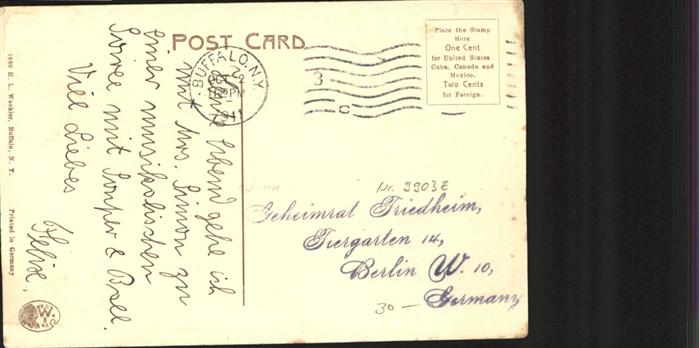 POST CARD
Place the Stamp
Here
One Cent
for United States
Cuba, Canada and
Mexico.
Two Cents
for Foreign.
BUFFALO, N.Y.
OCT 24
1911
3
C
Heute Abend gehe ich
mit Mrs. Simon zu
einer musikalischen
Soiree mit Souper & Ball.
Viel Liebes
Nr. 9903E
Geheimrat Friedheim,
Tiergarten 14,
Berlin W. 10,
Germany
30 —
1980 H. L. Woehler, Buffalo, N. Y.
Printed in Germany
W.